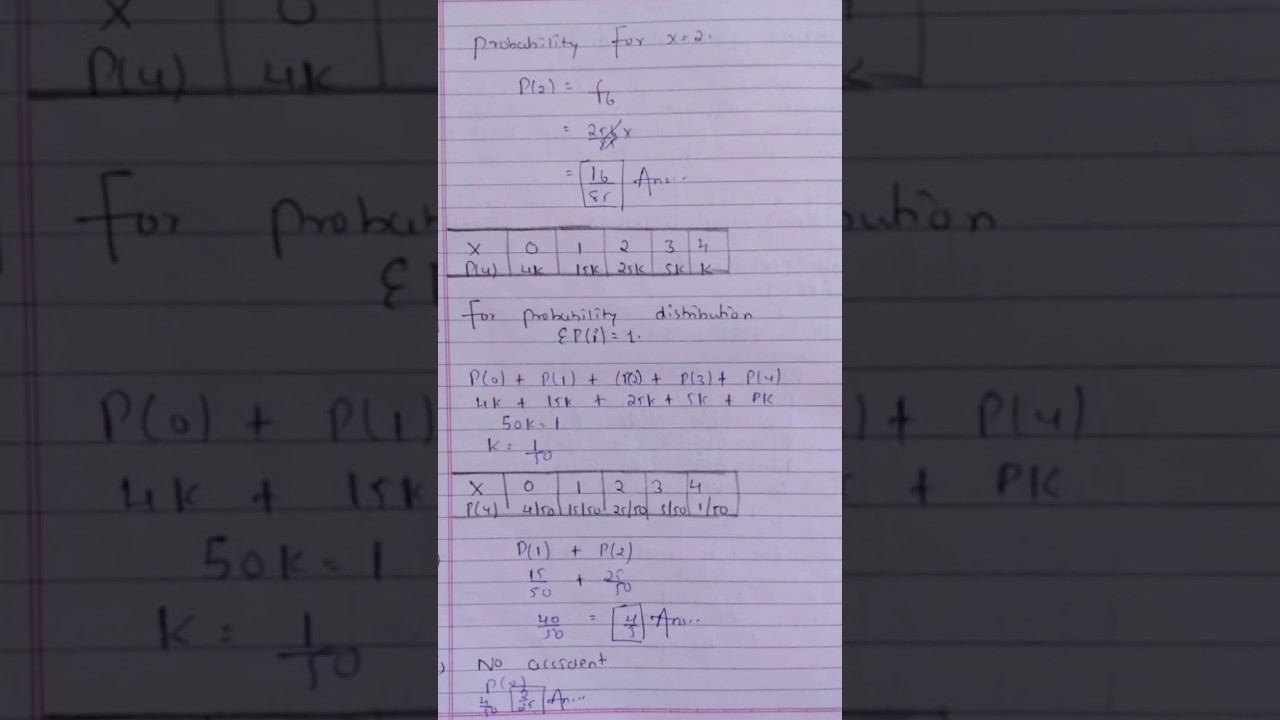 Probability for x=2.
P(2) = f6
= 25k x
= 16/85 Ans...
X 0 1 2 3 4
P(4) 4K 15K 25K 5K K
For probability distribution
ΣP(i) = 1.
P(0) + P(1) + P(2) + P(3) + P(4)
4K + 15K + 25K + 5K + PK
50K = 1
K = 1/50
X 0 1 2 3 4
P(4) 4/50 15/50 25/50 5/50 1/50
P(1) + P(2)
15/50 + 25/50
40/50 = 4/5 Ans...
No accident
P(2)
4/50 2/25 Ans...